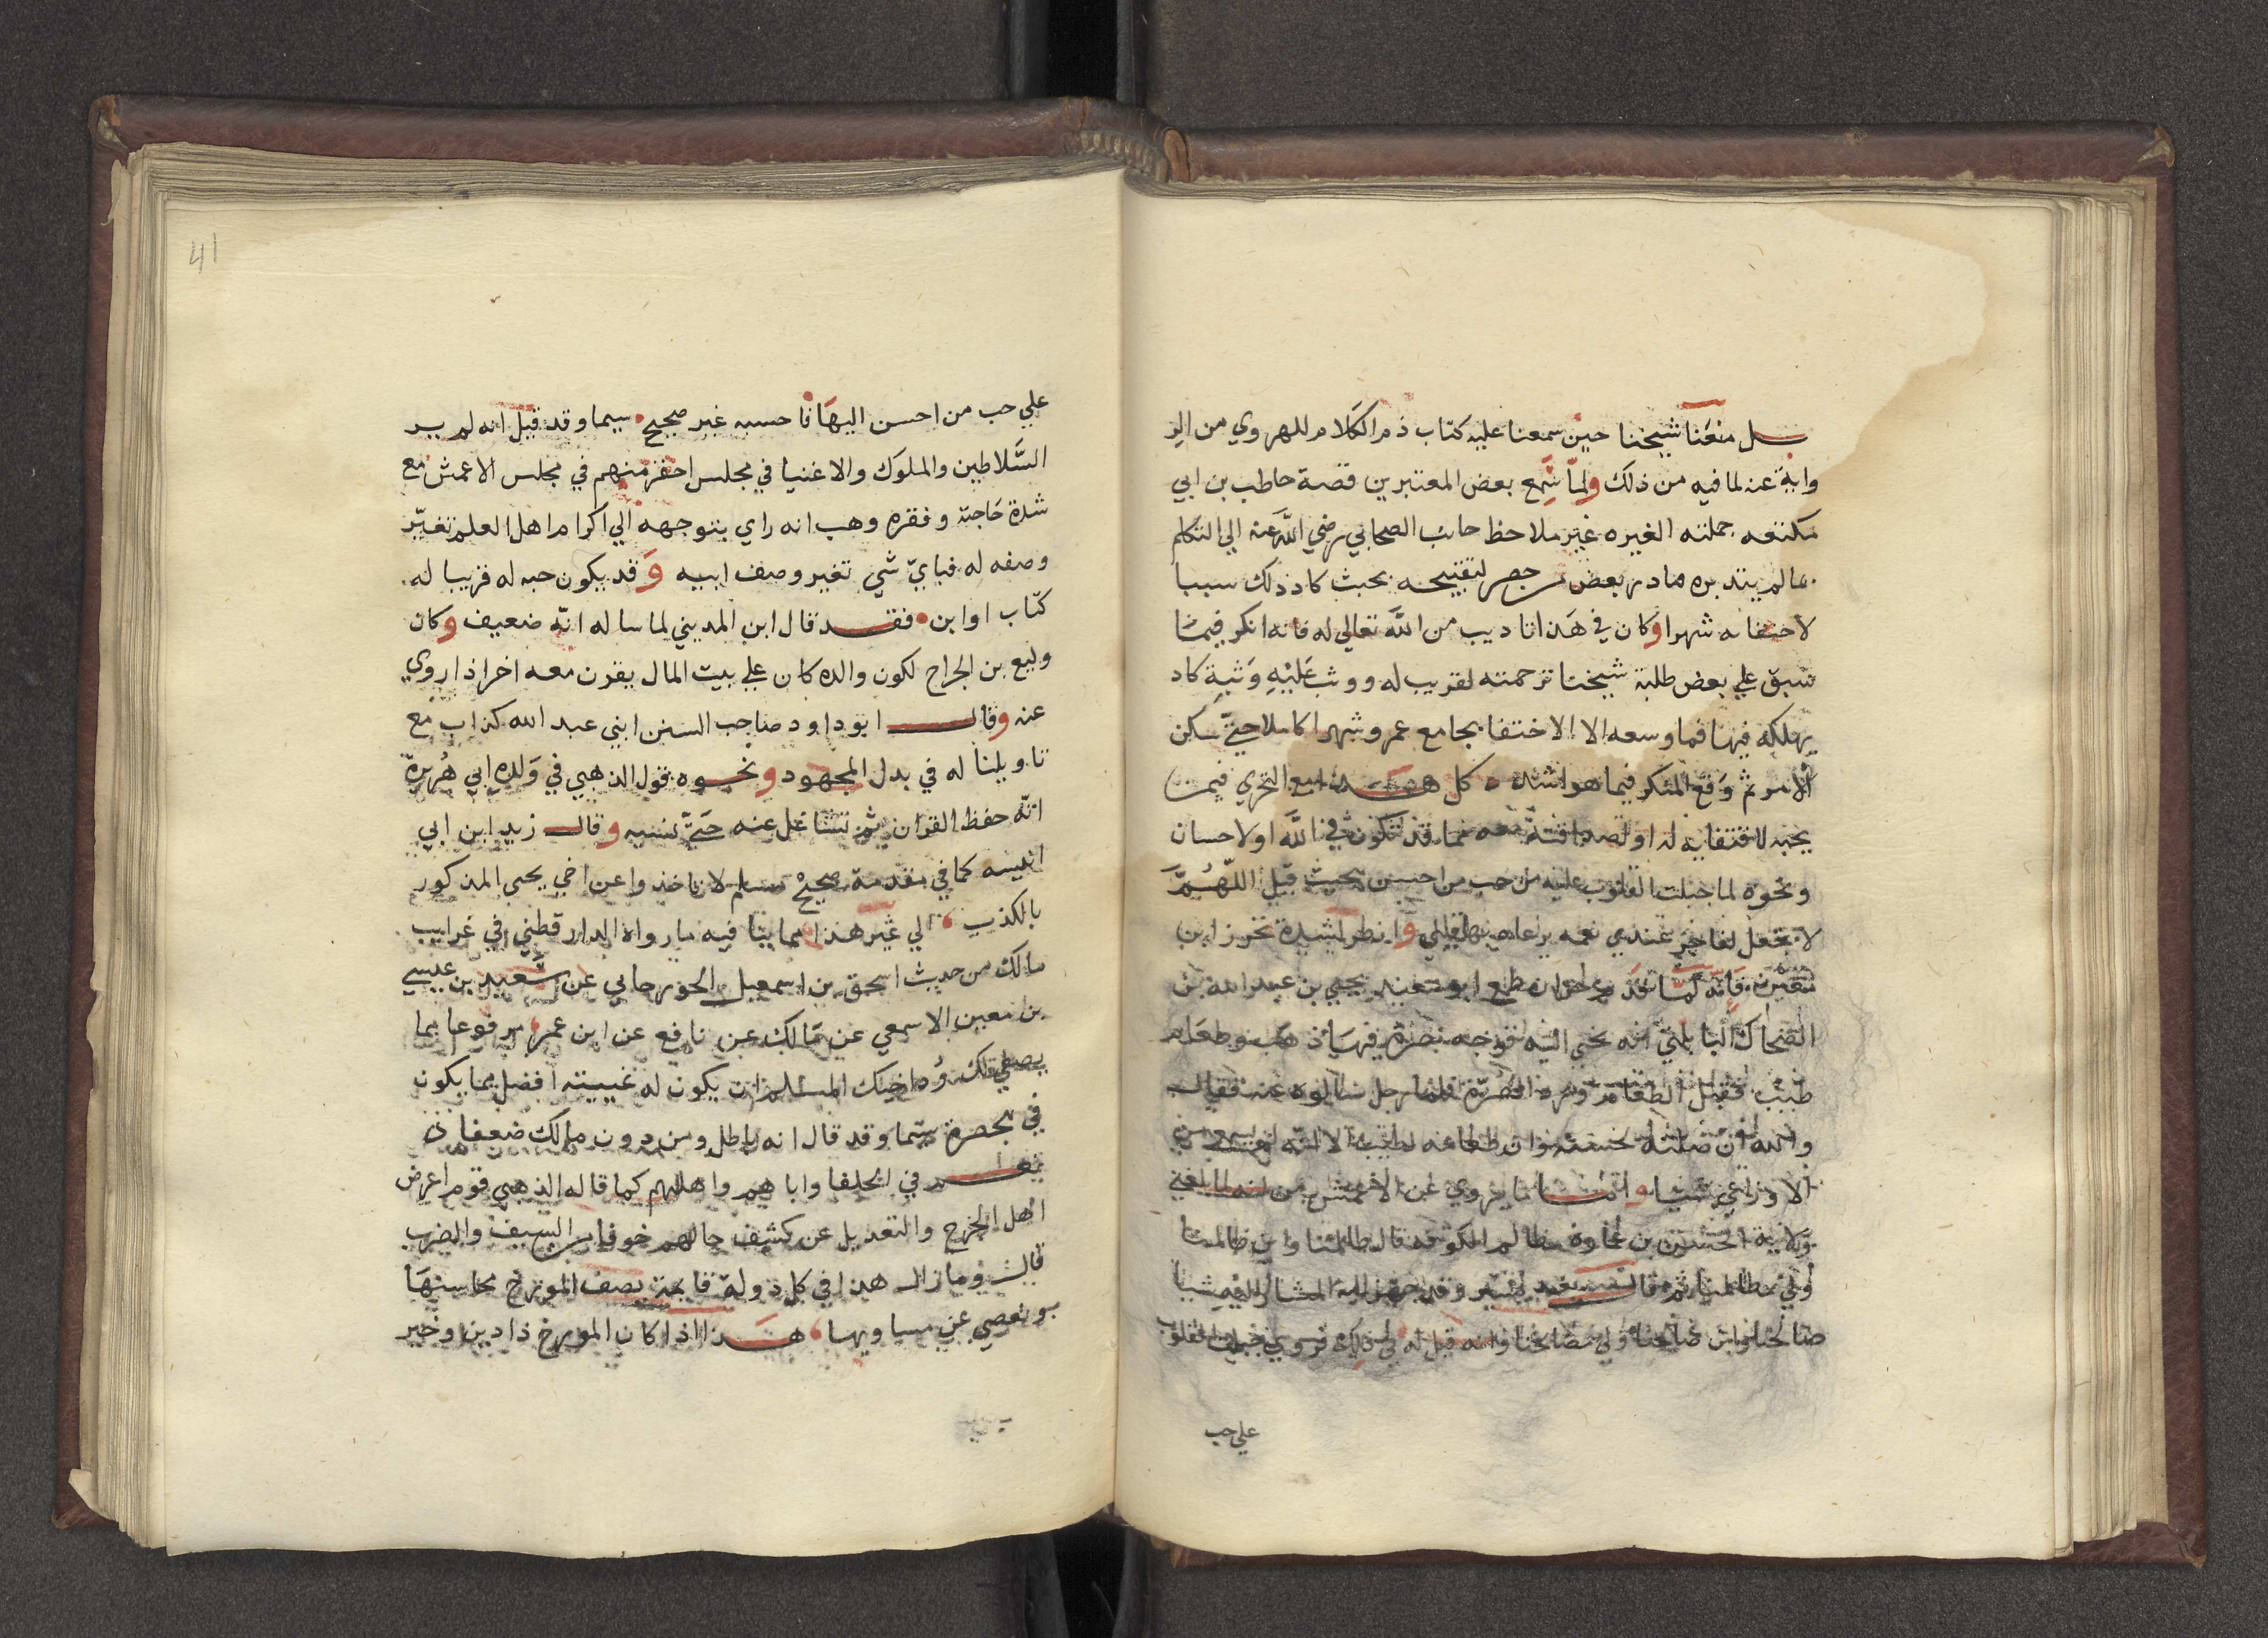 بل منعنا شيخنا حين سمعنا عليه كتاب ذم الكلام للهروي من الر
واية عنه لما فيه من ذلك ولما سمع بعض المعتبرين قصة حاطب بن ابي
بلتعه حملته الغيره غير ملاحظ جانب الصحابي رضي الله عنه الي التكلم
بما لم يتدبره فبادر بعض من حضر لتقبيحه بحيث كاد ذلك سببا
لاختفائه شهرا وكان في هذا تاديب من الله تعالي له فانه انكر فيما
سبق علي بعض طلبة شيخنا ترجمته لقريب له ووثب عليه وثبة كاد
يهلكه فيها فما وسعه الا الاختفا بجامع عمرو شهرا كاملا حتي سكن
الامر ثم وقع المنكر فيما هو اشد ه كل هذا مع التحري فيمن
يحبه لاقتفايه له او لصداقته معه مما قد تكون في الله او لاحسان
ونحوه لما جبلت القلوب عليه من حب من احسن بحيث قيل اللهم
لا تجعل لفاجر عندي نعمه يرعاه بها قلبي وانظر لشدة تحرز ابن
معين فانه لما قدم حران طمع ابو سعيد يحيي بن عبد الله بن
الضحاك البابلتي انه يجي اليه فوجه بصرة فيها ذهب وطعام
طيب فقبل الطعام ورد الصرة فلما رحل سالوه عنه فقال
والله ان صلته حسنة وان طعامه لطيب الا انه لم يسمع من
الاوزاعي شيا واما ما يروي عن الاعمش من انه لما بلغه
ولاية الحسن بن عمارة مظالم الكوفه قال ظالمنا وابن ظالمنا
ولي مظالمنا ثم قال بعد يسير وقد جهز اليه المشار اليه شيا
صالحنا وابن صالحنا ولي مصالحنا وانه قيل له في ذلك فروي جبلت القلوب
علي حب
41
علي حب من احسن اليها فاحسبه غير صحيح سيما وقد قيل انه لم ير
السلاطين والملوك والاغنيا في مجلس احقر منهم في مجلس الاعمش مع
شدة حاجته وفقره وهب انه راي بتوجهه الي اكرام اهل العلم تغير
وصفه له فباي شي تغير وصف ابيه وقد يكون حبه له قريبا له
كاب او ابن فقد قال ابن المديني لما ساله انه ضعيف وكان
وكيع بن الجراح لكون والده كان علي بيت المال يقرن معه اخر اذا روي
عنه وقال ابو داود صاحب السنن ابني عبد الله كذاب مع
تاويلنا له في بدل المجهود ونحوه قول الذهبي في ولده ابي هريرة
انه حفظ القران ثم تشاغل عنه حتي نسيه وقال زيد ابن ابي
انيسه كما في مقدمة صحيح مسلم لا تاخذوا عن اخي يحيى المذكور
بالكذب الي غير هذا مما بينا فيه ما رواه الدارقطني في غرايب
مالك من حديث اسحق بن اسمعيل الجورجاني عن سعيد بن عيسي
بن معين الاسمعي عن مالك عن نافع عن ابن عمر مرفوعا بما
يصفي لك ود اخيك المسلم ان يكون له غيبته افضل مما يكون
في بحضرة سيما وقد قال انه باطل ومن دون مالك ضعفا ن
نعم في الخلفا واباهم واهلهم كما قاله الذهبي قوم اعرض
اهل الجرح والتعديل عن كشف حالهم خوفا من السيف والضرب
قال وما زال هذا في كل دولة قايمة يصف المورخ محاسنها
ويغضي عن مساويها هذا اذا كان المورخ ذا دين وخير